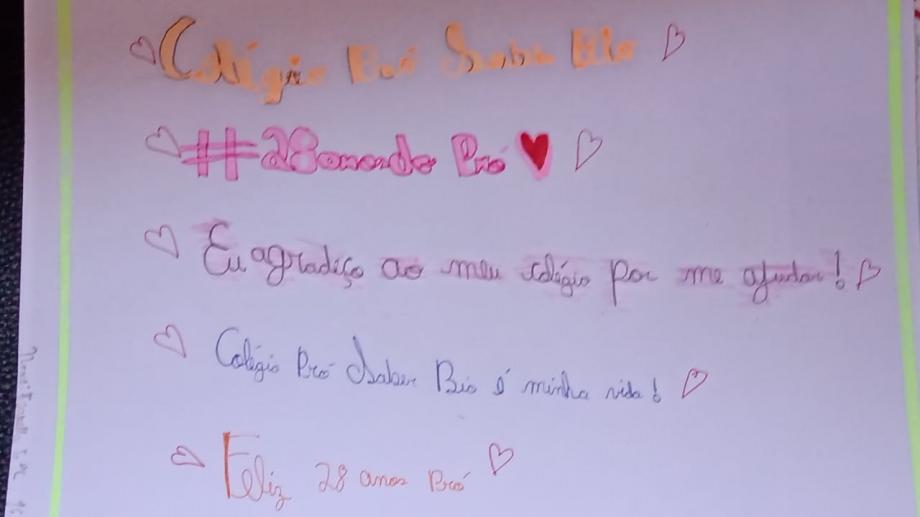 Colégio Pró Saber Bio
#28anosdo Pró
Eu agradiço ao meu colégio por me ajudar!
Colégio Pró Saber Bio é minha vida!
Feliz 28 anos Pró